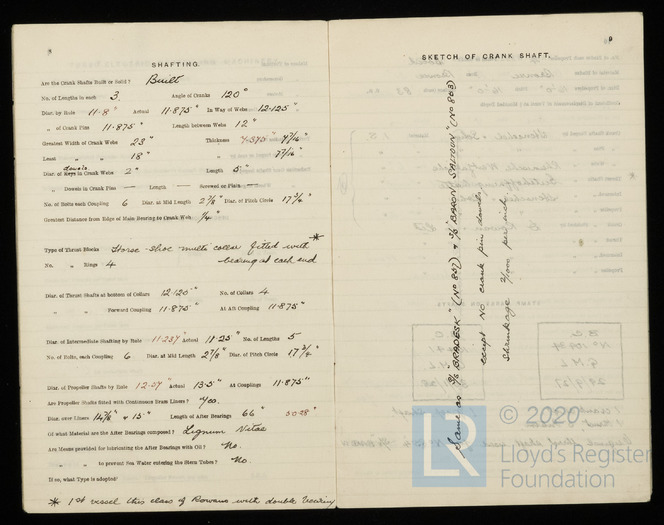 8
SHAFTING.
Are the Crank Shafts Built or Solid? Built
No. of Lengths in each 3 Angle of Cranks 120°
Diar. by Rule 11·8" Actual 11·875" In Way of Webs 12·125"
" of Crank Pins 11·875" Length between Webs 12"
Greatest Width of Crank Webs 23" Thickness 7·375" 7 7/16"
Least " " 18" " 7 7/16"
Diar. of Keys in Crank Webs dowels 2" Length 5"
" Dowels in Crank Pins — Length — Screwed or Plain —
No. of Bolts each Coupling 6 Diar. at Mid Length 2 7/8" Diar. of Pitch Circle 17 3/4"
Greatest Distance from Edge of Main Bearing to Crank Web 1/4"
Type of Thrust Blocks Horse Shoe multi collar fitted with *
No. " Rings 4 bearing at each end
Diar. of Thrust Shafts at bottom of Collars 12·125" No. of Collars 4
" " Forward Coupling 11·875" At Aft Coupling 11·875"
Diar. of Intermediate Shafting by Rule 11·237 Actual 11·25" No. of Lengths 5
No. of Bolts, each Coupling 6 Diar. at Mid Length 2 7/8" Diar. of Pitch Circle 17 3/4"
Diar. of Propeller Shafts by Rule Actual 13·5" At Couplings 11·875"
Are Propeller Shafts fitted with Continuous Brass Liners? Yes.
Diar. over Liners 14 7/8" & 15" Length of After Bearings 66"
Of what Material are the After Bearings composed? Lignum Vitae
Are Means provided for lubricating the After Bearings with Oil? No.
" " to prevent Sea Water entering the Stern Tubes? No.
If so, what Type is adopted?
* 1st vessel this class of Rowans with double bearing
9
SKETCH OF CRANK SHAFT.
Same as S/S "BRADESK" (No 857) & S/S "BARON SALTOUN" (No 858)
except no crank pin dowels
shrinkage per inch
© 2020
LR
Lloyd's Register
Foundation